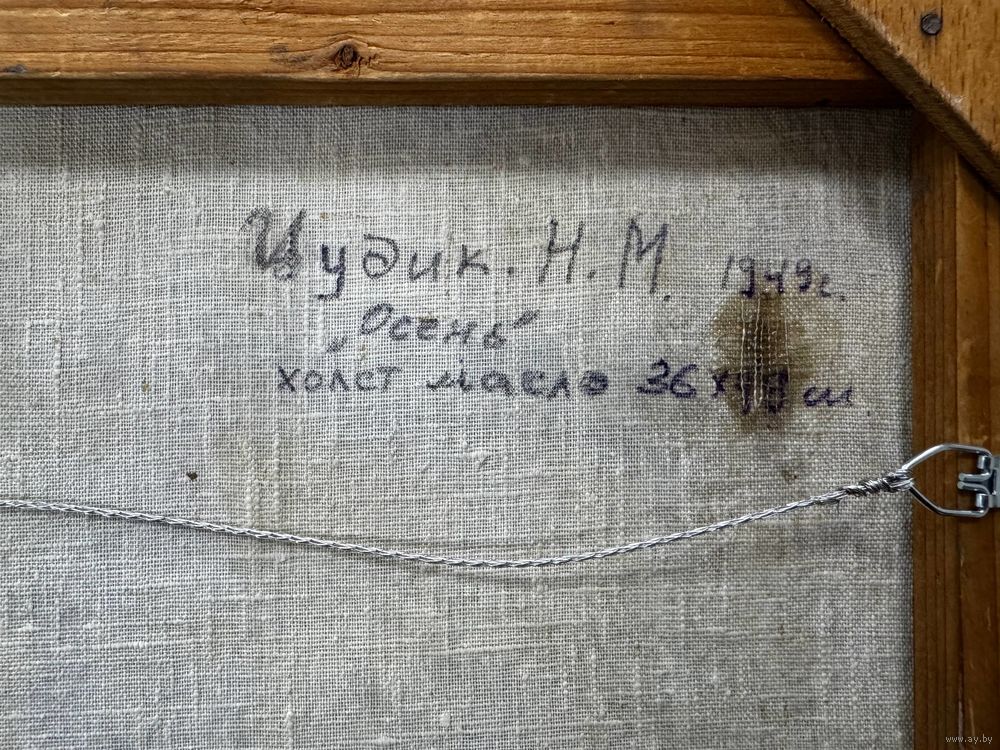 Цудик. Н. М. 1949г.
„Осень"
холст масло 36х49 см
www.ay.by